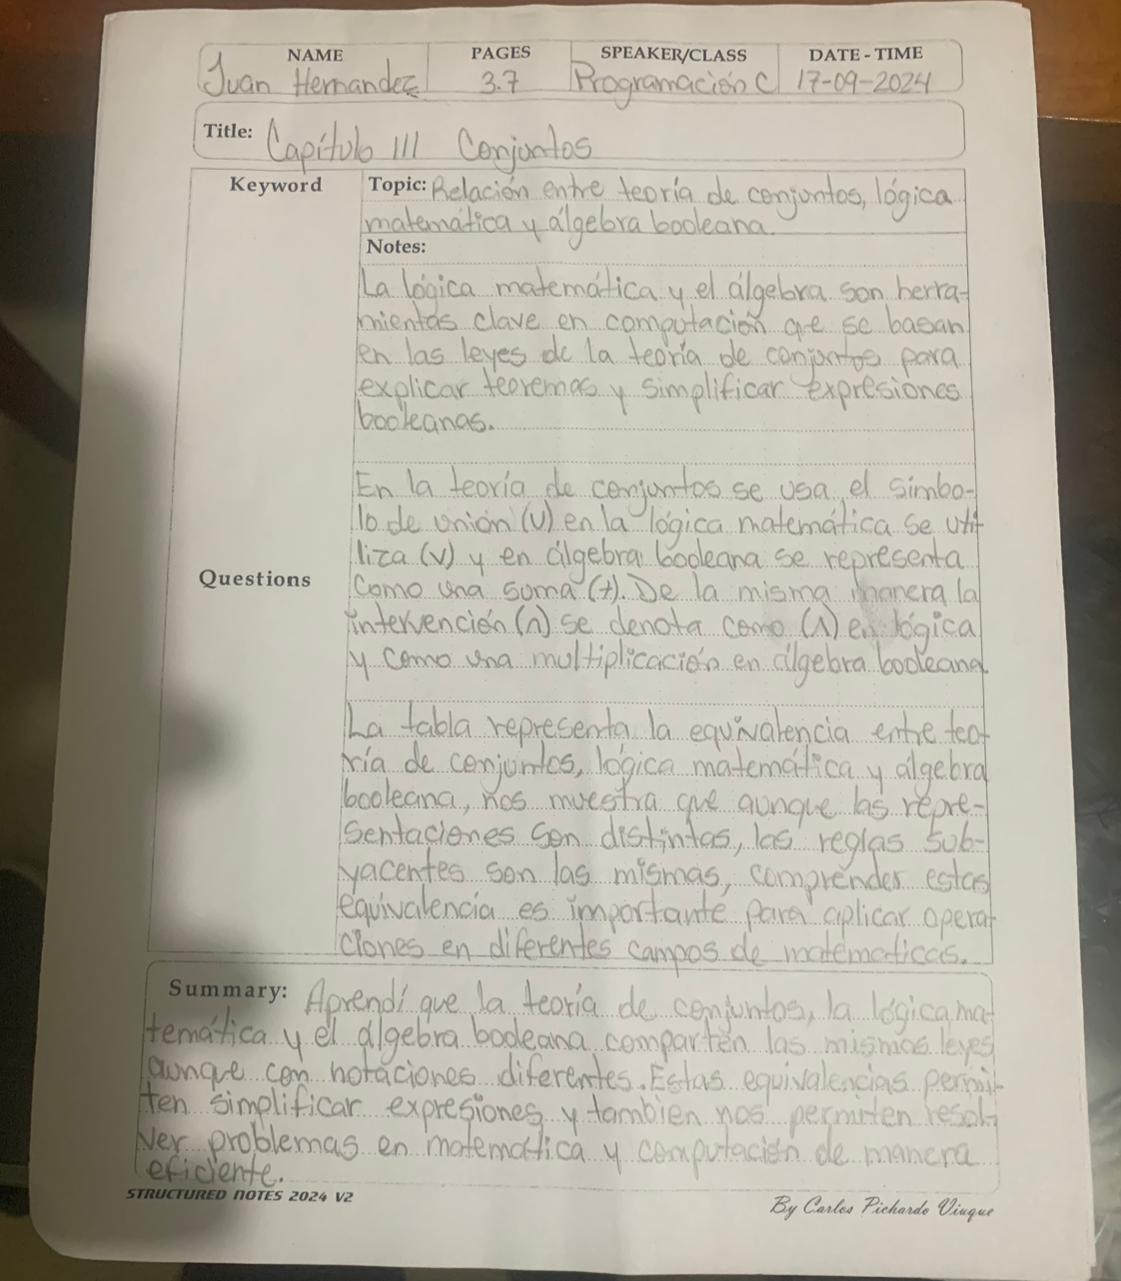 NAME PAGES SPEAKER/CLASS DATE - TIME
Juan Hernandez 3.7 Programación C 17-09-2024
Title: Capítulo III Conjuntos
Keyword
Topic: Relación entre teoría de conjuntos, lógica
matemática y álgebra booleana.
Notes:
La lógica matemática y el álgebra son herra-
mientas clave en computación que se basan
en las leyes de la teoría de conjuntos para
explicar teoremas y simplificar expresiones
booleanas.
En la teoría de conjuntos se usa el simbo-
lo de unión (∪) en la lógica matemática se uti-
liza (∨) y en álgebra booleana se representa
Questions
como una suma (+). De la misma manera la
intervención (∩) se denota como (∧) en lógica
y como una multiplicación en álgebra booleana
La tabla representa la equivalencia entre teo-
ría de conjuntos, lógica matemática y álgebra
booleana, nos muestra que aunque las repre-
sentaciones son distintas, las reglas sub-
yacentes son las mismas, comprender estas
equivalencia es importante para aplicar opera-
ciones en diferentes campos de matematicas.
Summary: Aprendí que la teoría de conjuntos, la lógica ma-
temática y el álgebra booleana comparten las mismas leyes
aunque con notaciones diferentes. Estas equivalencias permi-
ten simplificar expresiones y tambien nos permiten resol-
ver problemas en matemática y computación de manera
eficiente.
STRUCTURED NOTES 2024 V2
By Carlos Pichardo Viuque